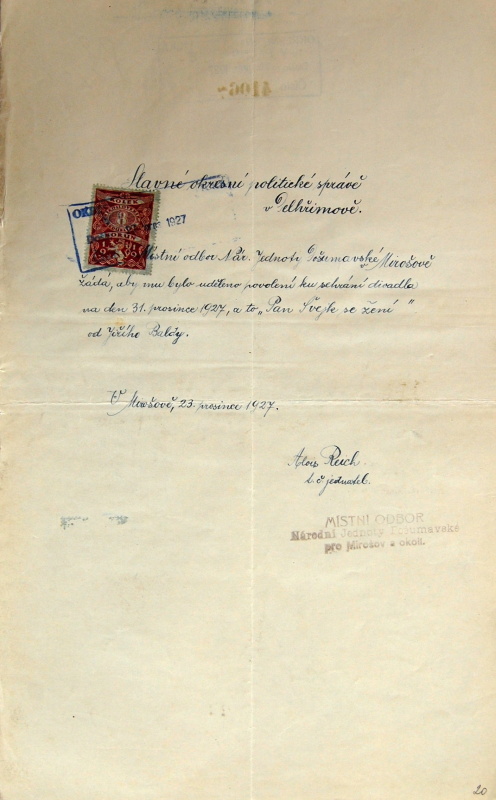 Slavné okresní politické správě
v Pelhřimově.
Místní odbor Nár. Jednoty Pošumavské v Mirošově
žádá, aby mu bylo uděleno povolení ku sehrání divadla
na den 31. prosince 1927, a to „Pan Švejk se žení"
od Jiřího Baldy.
V Mirošově, 23. prosince 1927.
Alois Reich
t. č. jednatel.
MÍSTNÍ ODBOR
Národní Jednoty Pošumavské
pro Mirošov a okolí.
KOLEK
3
1927
20